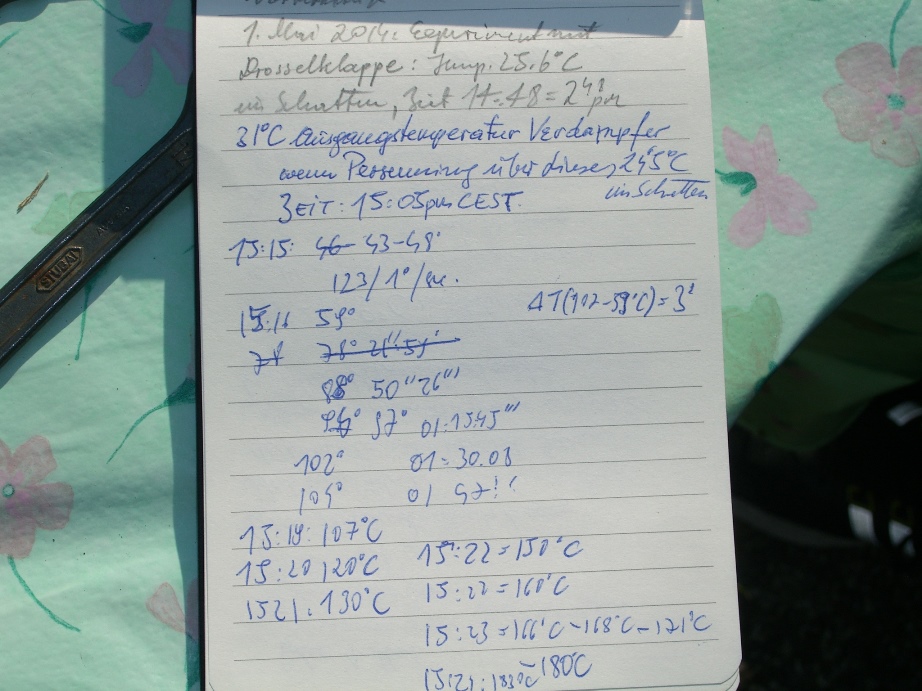 1. Mai 2014: Experiment mit
Drosselklappe: Temp. 25.6°C
im Schatten, Zeit 14:48 = 2 48 pm
31°C Ausgangstemperatur Verdampfer
wenn Persenning über dieses, 24,5°C
im Schatten
ZEIT: 15:05pm CEST.
15:15: 46- 43-48°
123/1°/
15:16 59° ΔT(102-59°C)=3'
78° 21"
88° 50"26"'
97° 01:15.45"'
102° 01:30.08
104° 01 47
15:19: 107°C
15:20 120°C 15:22=150°C
1521: 130°C 15:22=160°C
15:23=166°C-168°C-171°C
180°C
STUBAI